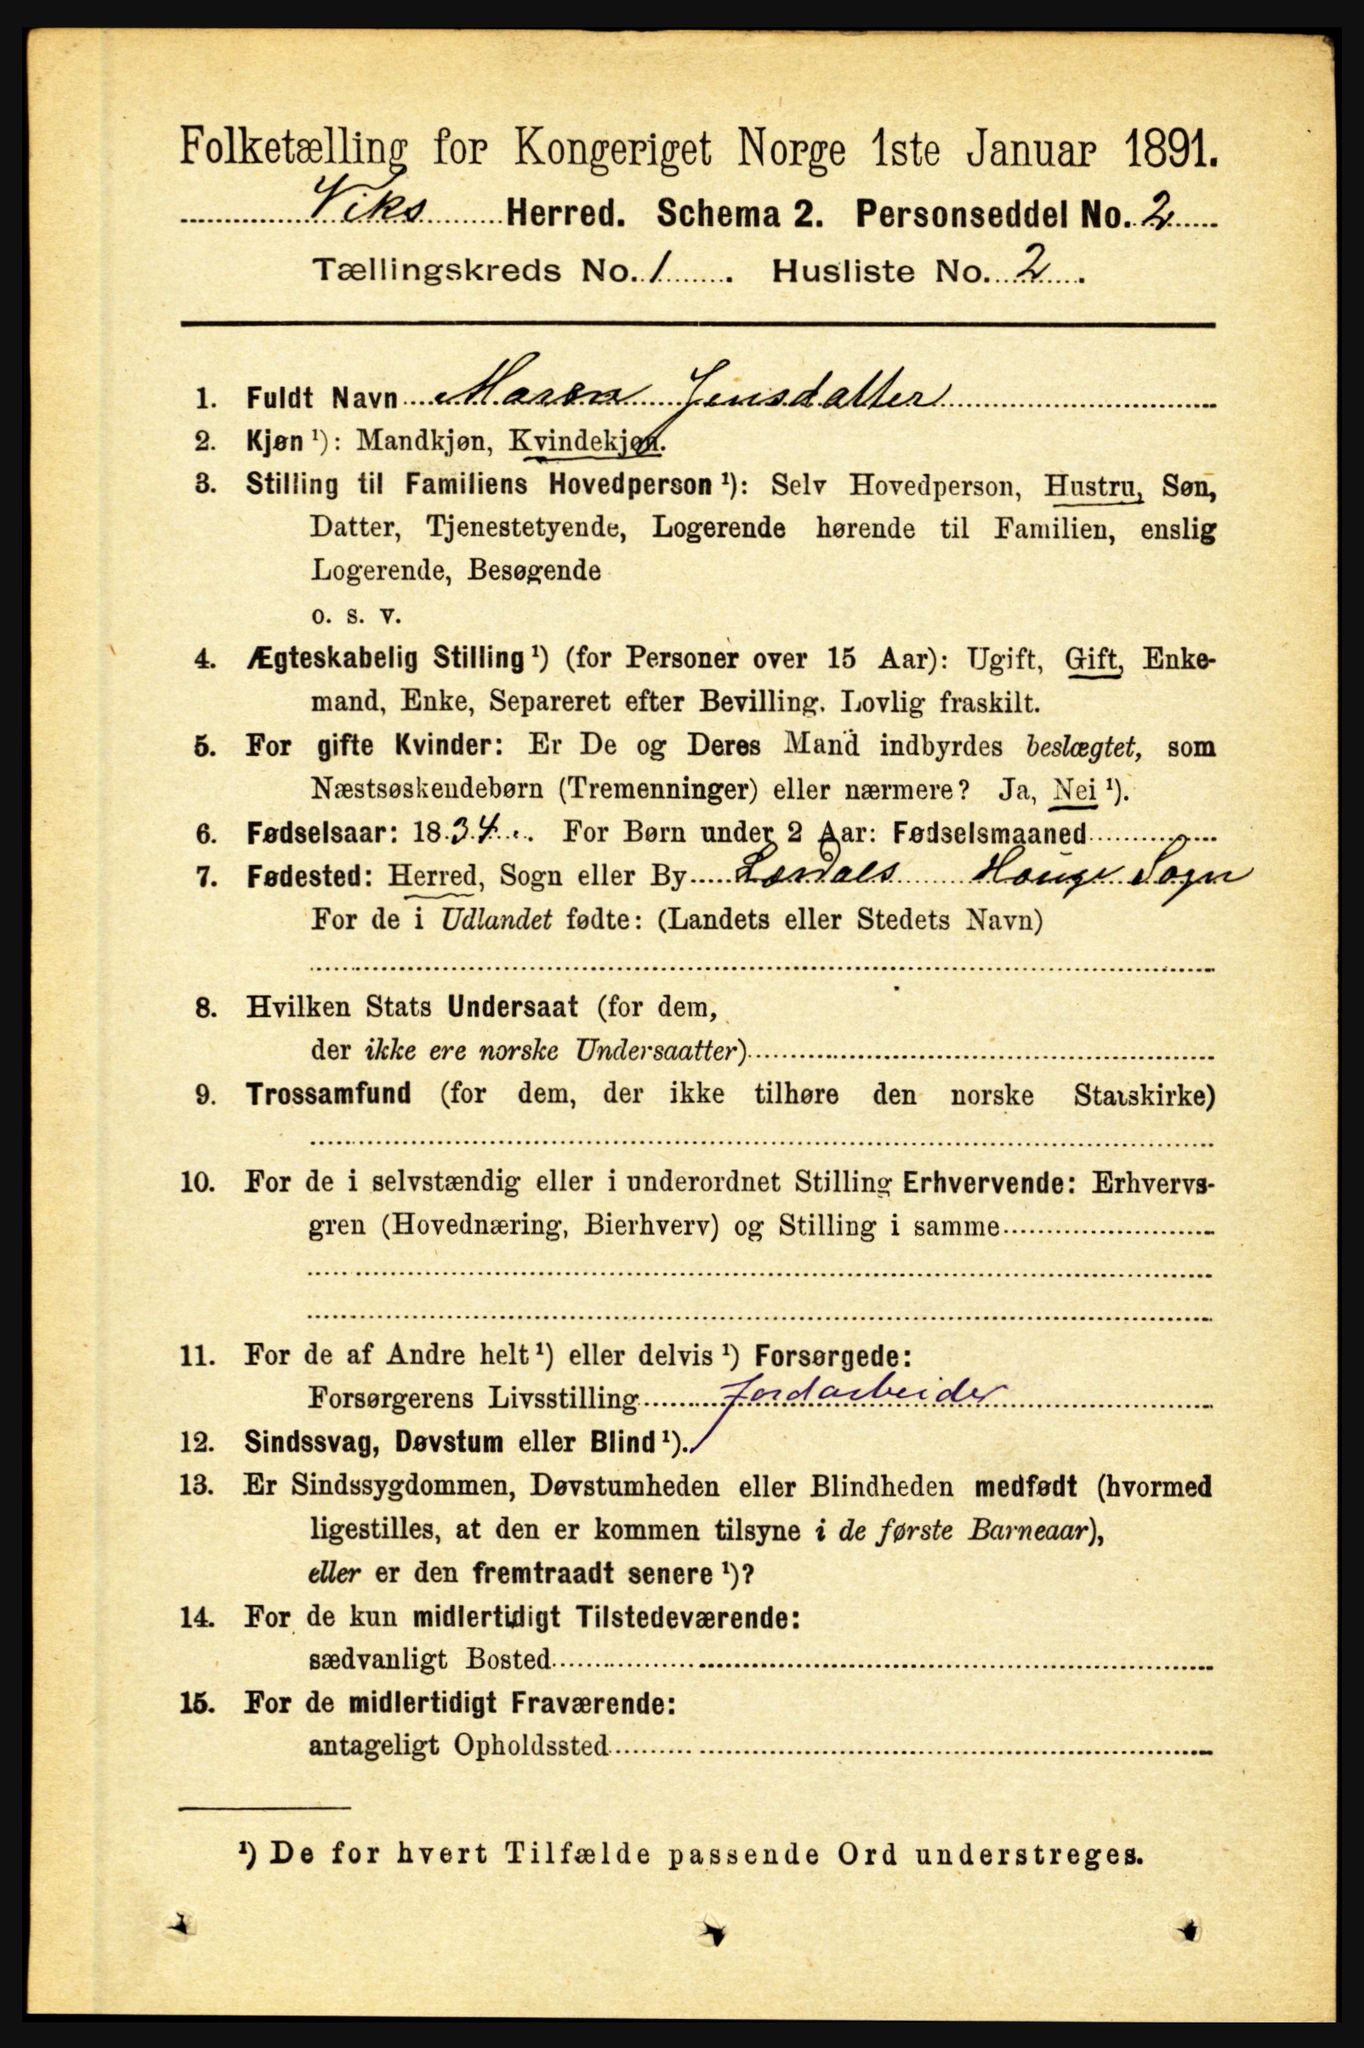 Folketælling for Kongeriget Norge 1ste Januar 1891.
Viks Herred. Schema 2. Personseddel No. 2
Tællingskreds No. 1. Husliste No. 2.
1. Fuldt Navn Maren Jensdatter
2. Kjøn ¹): Mandkjøn, Kvindekjøn.
3. Stilling til Familiens Hovedperson ¹): Selv Hovedperson, Hustru, Søn,
Datter, Tjenestetyende, Logerende hørende til Familien, enslig
Logerende, Besøgende
o. s. v.
4. Ægteskabelig Stilling ¹) (for Personer over 15 Aar): Ugift, Gift, Enke-
mand, Enke, Separeret efter Bevilling. Lovlig fraskilt.
5. For gifte Kvinder: Er De og Deres Mand indbyrdes beslægtet, som
Næstsøskendebørn (Tremenninger) eller nærmere? Ja, Nei ¹).
6. Fødselsaar: 1834. For Børn under 2 Aar: Fødselsmaaned
7. Fødested: Herred, Sogn eller By Lærdals Houge Sogn
For de i Udlandet fødte: (Landets eller Stedets Navn)
8. Hvilken Stats Undersaat (for dem,
der ikke ere norske Undersaatter)
9. Trossamfund (for dem, der ikke tilhøre den norske Statskirke)
10. For de i selvstændig eller i underordnet Stilling Erhvervende: Erhvervs-
gren (Hovednæring, Bierhverv) og Stilling i samme
11. For de af Andre helt ¹) eller delvis ¹) Forsørgede:
Forsørgerens Livsstilling Jordarbeider
12. Sindssvag, Døvstum eller Blind ¹).
13. Er Sindssygdommen, Døvstumheden eller Blindheden medfødt (hvormed
ligestilles, at den er kommen tilsyne i de første Barneaar),
eller er den fremtraadt senere ¹)?
14. For de kun midlertidigt Tilstedeværende:
sædvanligt Bosted
15. For de midlertidigt Fraværende:
antageligt Opholdssted
¹) De for hvert Tilfælde passende Ord understreges.